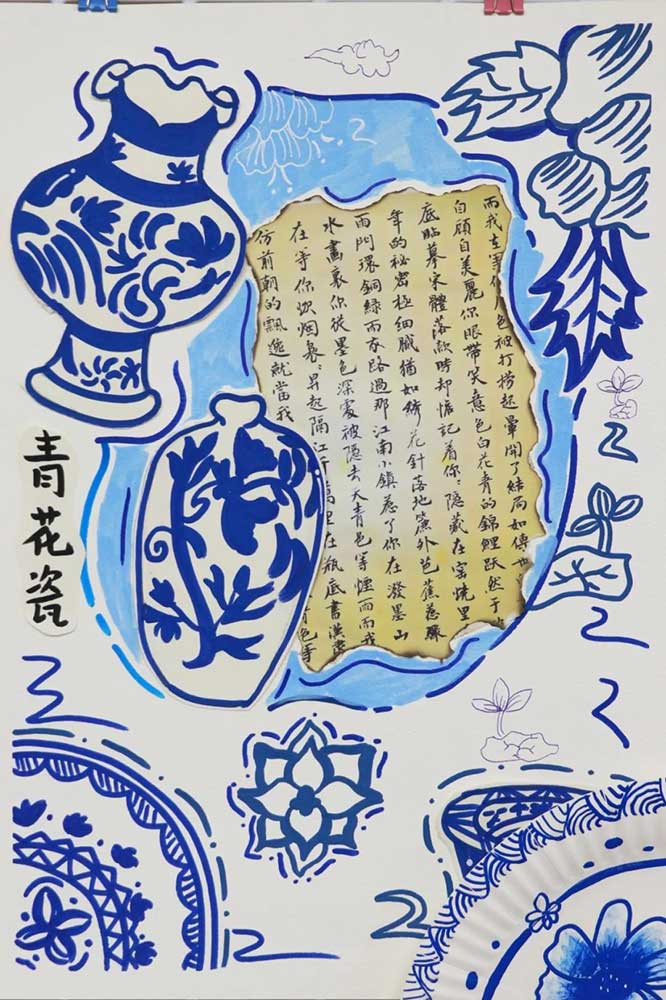 青花瓷
而我在等 色被打捞起暈開了結局如傳世
自顧自美麗你眼帶笑意色白花青的錦鯉跃然于
底臨摹宋體落款時却惦記着你:隱藏在窑燒里
年的秘密極細膩猶如綉花針落地簾外芭蕉惹驟
雨門環銅綠而我路過那江南小鎮惹了你在潑墨山
水畫裏你從墨色深處被隱去天青色等煙雨而我
在等你炊烟裊:昇起隔江千萬里在瓶底書漢隸
仿前朝的飄逸就當我 青色等